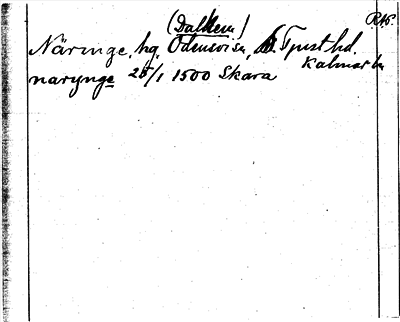 (Dalhem) RAp.
Näringe, hg. Odensvi sn, N. Tjust hd.
Kalmar län
narynge 25/1 1500 Skara